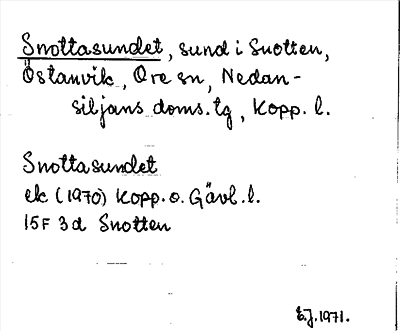 Snottasundet, sund i Snotten,
Östanvik, Ore sn, Nedan-
siljans doms. tg, Kopp. l.
Snottasundet
ek (1970) Kopp. o. Gävl. l.
15F 3d Snotten
E.J. 1971.